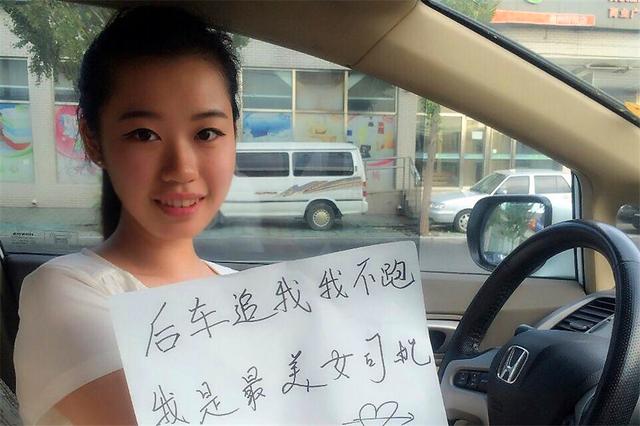 后车追我我不跑
我是最美女司机